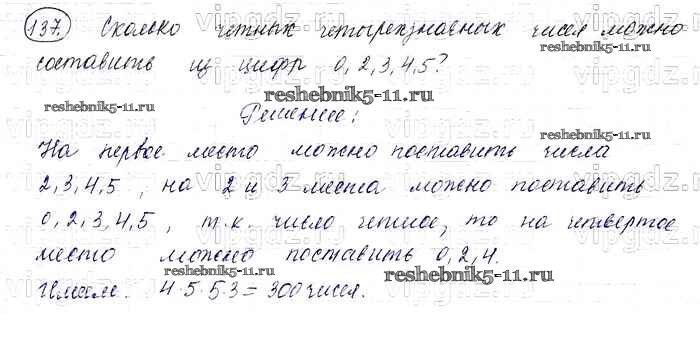 137. Сколько четных четырехзначных чисел можно
составить из цифр 0, 2, 3, 4, 5?
reshebnik5-11.ru
Решение:
На первое место можно поставить числа
2, 3, 4, 5, на 2 и 3 места можно поставить
0, 2, 3, 4, 5, т.к. число четное, то на четвертое
место можно поставить 0, 2, 4.
Имеем: 4·5·5·3 = 300 чисел.
reshebnik5-11.ru
reshebnik5-11.ru
reshebnik5-11.ru
reshebnik5-11.ru
vipgdz.ru